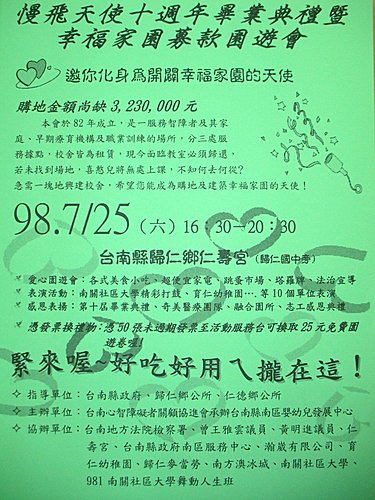 慢飛天使十週年畢業典禮暨
幸福家園募款園遊會
邀你化身為開闢幸福家園的天使
購地金額尚缺 3,230,000 元
本會於 82 年成立，是一服務智障者及其家
庭、早期療育機構及職業訓練的場所，分三處服
務據點，校舍皆為租賃，現今面臨教室必須歸還，
若未找到場地，喜憨兒將無處上課，不知何去何從?
急需一塊地興建校舍，希望您能成為購地及建築幸福家園的天使！
98.7/25（六）16：30—20：30
台南縣歸仁鄉仁壽宮（歸仁國中旁）
愛心園遊會：各式美食小吃、超便宜家電、跳蚤市場、塔羅牌、法治宣導
表演活動：南關社區大學精彩打鼓、育仁幼稚園…等 10 個單位表演
感恩表揚：第十屆畢業典禮、奇美醫療團隊、融合園所、志工感恩典禮
憑發票換禮物：憑 50 張未過期發票至活動服務台可換取 25 元免費園
遊卷喔！
緊來喔 好吃好用ㄟ攏在這！
指導單位：台南縣政府、歸仁鄉公所、仁德鄉公所
主辦單位：台南心智障礙者關顧協進會承辦台南縣南區嬰幼兒發展中心
協辦單位：台南地方法院檢察署、曾王雅雲議員、黃明進議員、仁
壽宮、台南縣政府南區服務中心、瀚崴有限公司、育
仁幼稚園、歸仁麥當勞、南方澳冰城、南關社區大學、
981 南關社區大學舞動人生班